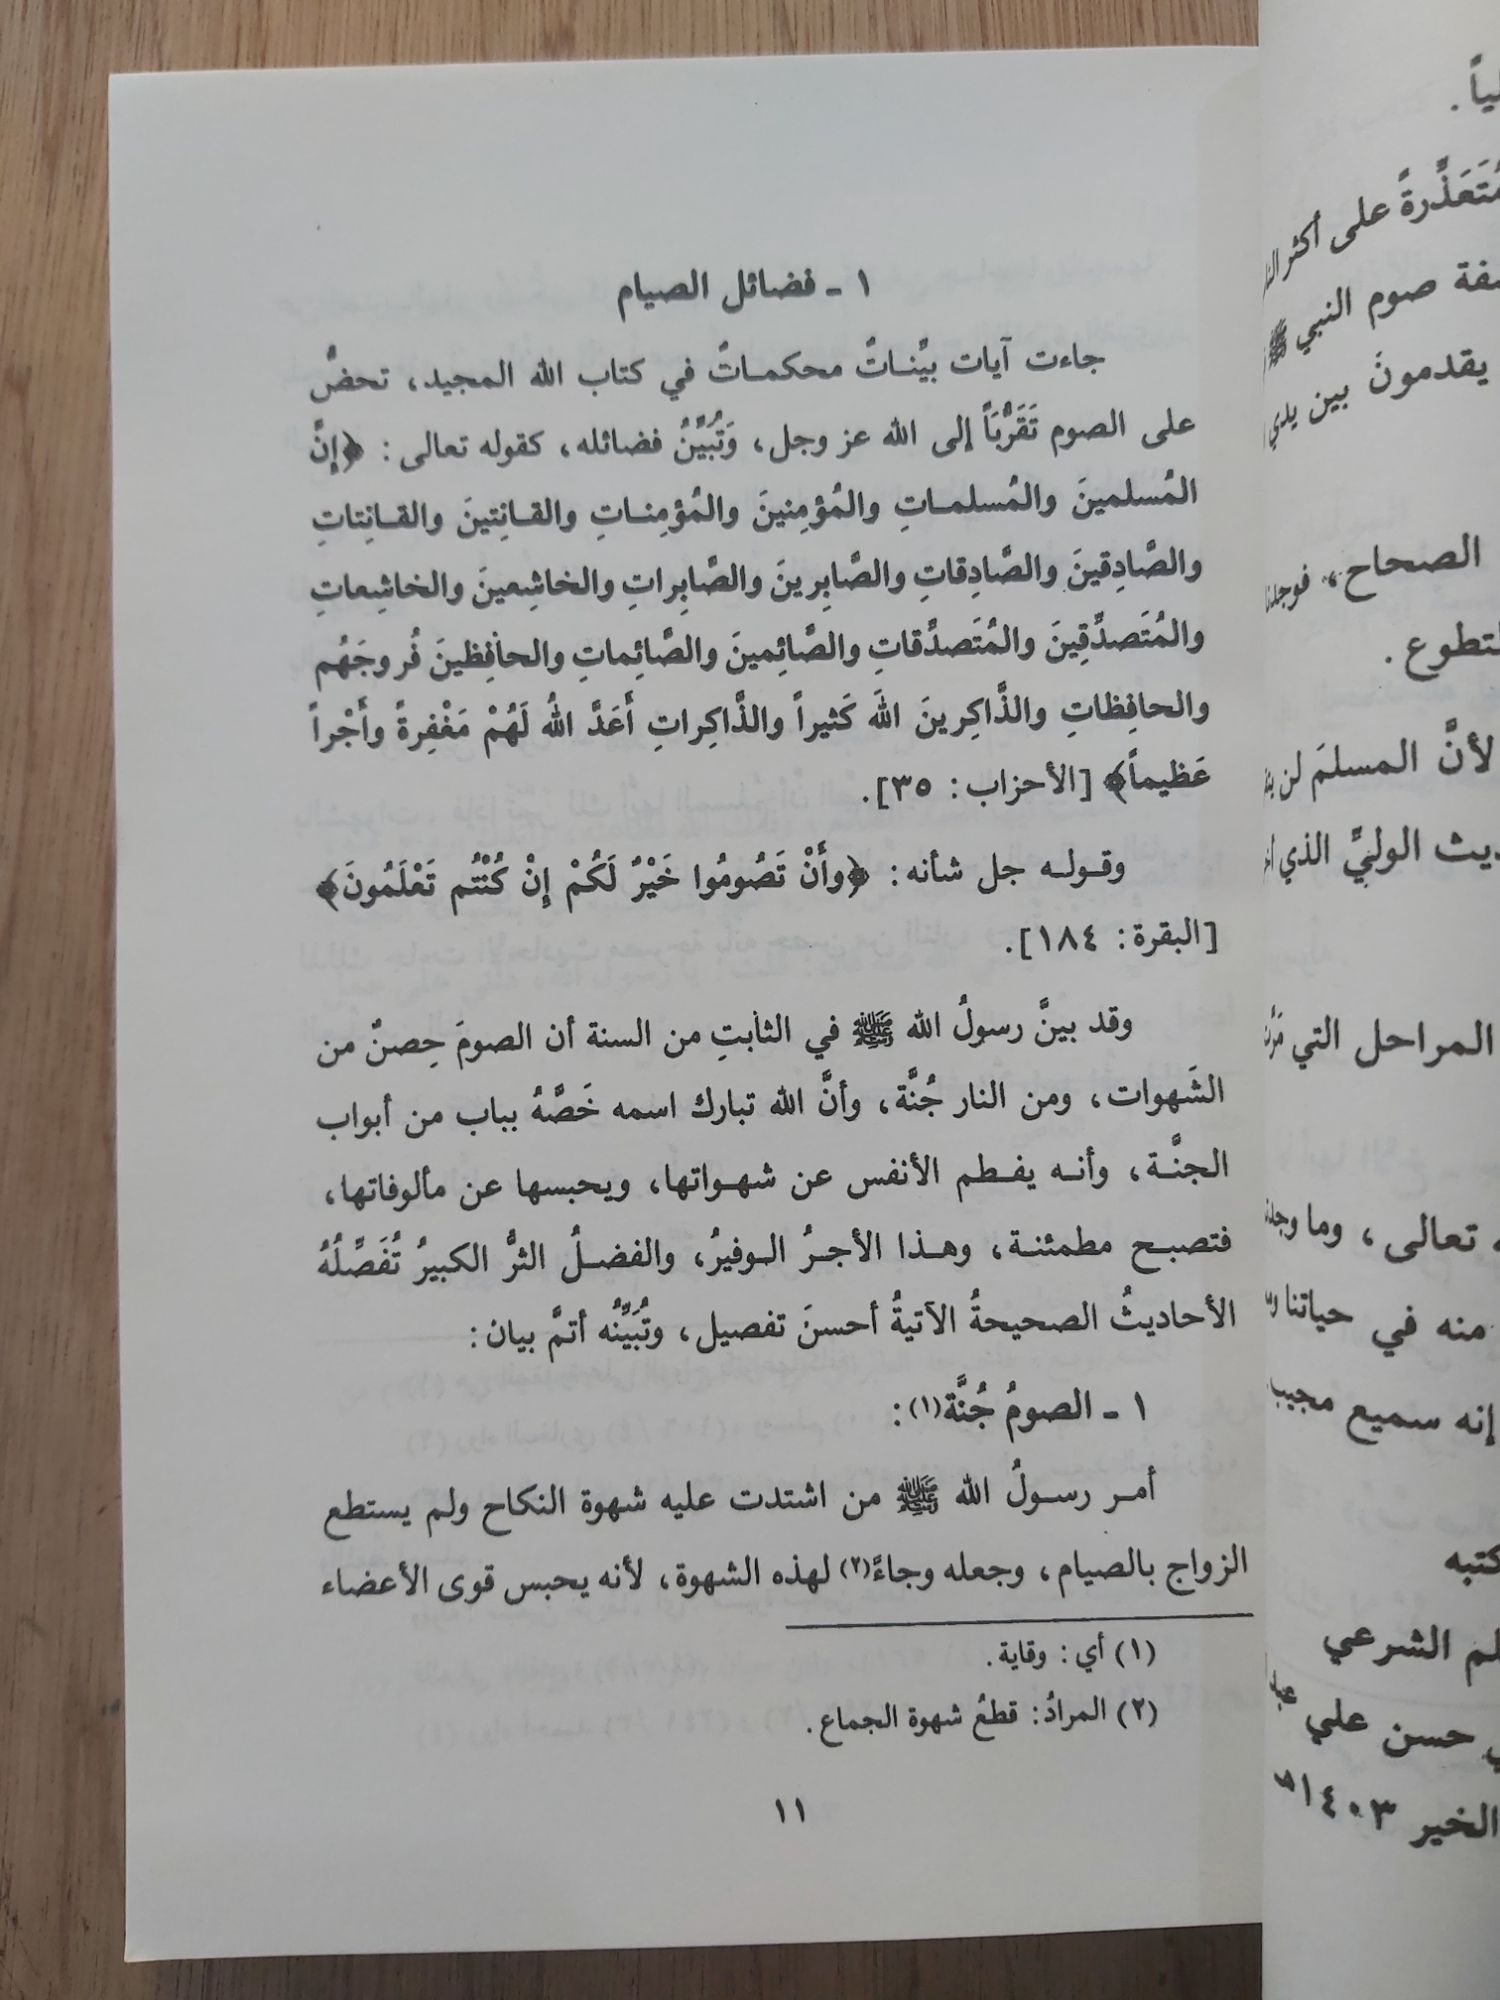 ١ ـ فضائل الصيام
جاءت آيات بيِّناتٌ محكماتٌ في كتاب الله المجيد، تحضُّ
على الصوم تَقَرُّبَاً إلى الله عز وجل، وَتُبَيِّنُ فضائله، كقوله تعالى: ﴿إنَّ
المُسلمينَ والمُسلماتِ والمُؤمِنينَ والمُؤمِناتِ والقانِتينَ والقانِتاتِ
والصَّادِقينَ والصَّادِقاتِ والصَّابِرينَ والصَّابِراتِ والخاشِعينَ والخاشِعاتِ
والمُتَصدِّقِينَ والمُتَصدِّقاتِ والصَّائِمينَ والصَّائِماتِ والحافِظينَ فُروجَهُم
والحافِظاتِ والذَّاكِرينَ اللهَ كَثيراً والذَّاكِراتِ أَعَدَّ اللهُ لَهُمْ مَغْفِرةً وأَجْراً
عَظيماً﴾ [الأحزاب: ٣٥].
وقوله جل شأنه: ﴿وأَنْ تَصُومُوا خَيْرٌ لَكُمْ إنْ كُنْتُم تَعْلَمُونَ﴾
[البقرة: ١٨٤].
وقد بينَّ رسولُ الله ﷺ في الثابتِ من السنة أن الصومَ حِصنٌ من
الشَهوات، ومن النار جُنَّة، وأنَّ الله تبارك اسمه خَصَّهُ بباب من أبواب
الجنَّة، وأنه يفطم الأنفس عن شهواتها، ويحبسها عن مألوفاتها،
فتصبح مطمئنة، وهذا الأجرُ الوفيرُ، والفضلُ الثرُّ الكبيرُ تُفَصِّلُهُ
الأحاديثُ الصحيحةُ الآتيةُ أحسنَ تفصيل، وتُبَيِّنُه أتمَّ بيان:
١ ـ الصومُ جُنَّة(١):
أمر رسولُ الله ﷺ من اشتدت عليه شهوة النكاح ولم يستطع
الزواج بالصيام، وجعله وجاءً(٢) لهذه الشهوة، لأنه يحبس قوى الأعضاء
(١) أي: وقاية.
(٢) المرادُ: قطعُ شهوة الجماع.
١١
على أكثر
صوم النبي ﷺ
يقدمونَ بين يدي
الصحاح، فوجدنا
لأنَّ المسلمَ لن
الوليِّ الذي
المراحل التي
تعالى، وما
منه في حياتنا
إنه سميع مجيب
الشرعي
حسن علي
الخير ١٤٠٣هـ